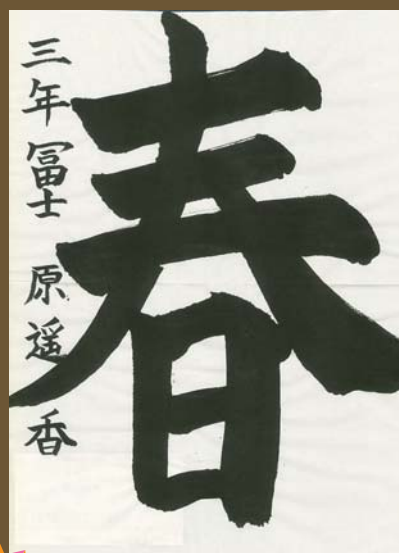 春
三年 冨士原 遥香